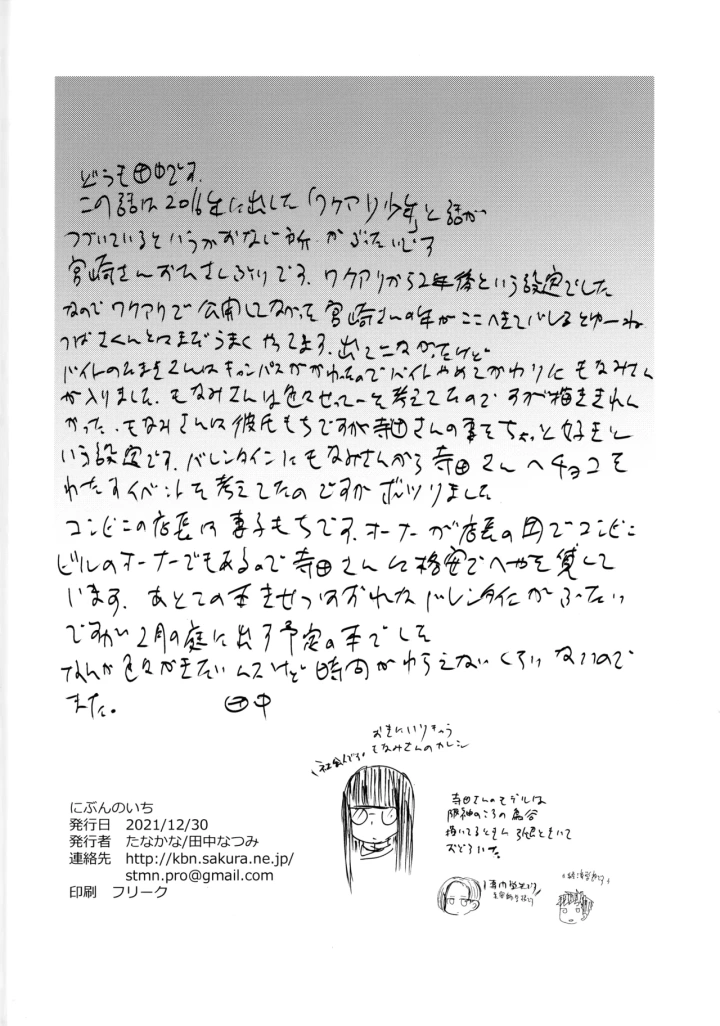 どうも田中です.
この話は2016年に出した「ワケアリ少年」と話が
つづいているというかおなじ所がぶたいです
宮崎さんおひさしぶりです. ワケアリから2年後という設定でした
なのでワケアリで公開してなかった宮崎さんの年がここへきてバレるとゆーね
つばさくんとはまだうまくやってます. 出てこなかったけど
バイトのたまきさんはキャンパスがかわったのでバイトやめてかわりにもなみさん
が入りました. もなみさんは色々せってーを考えてたのですが描ききれん
かった. もなみさんは彼氏もちですが寺田さんの事をちょっと好きと
いう設定です. バレンタインにもなみさんから寺田さんへチョコを
わたすイベントを考えてたのですがボツりました
コンビニの店長は妻子もちです. オーナーが店長の兄でコンビニ
ビルのオーナーでもあるので寺田さんに格安でへやを貸して
います. あとこの本きせつはずれなバレンタインがぶたい
ですがい2月の庭に出す予定の本でした
なんか色々かきたいんスけど時間がわらえないくらいないので
また。 田中
おきにいりキャラ
もなみさんのカレシ
社会人です。
寺田さんのモデルは
阪神のころの鳥谷
描いてるときん 引退ときいて
おどろいた。
にぶんのいち
発行日 2021/12/30
発行者 たなかな/田中なつみ
連絡先 http://kbn.sakura.ne.jp/
stmn.pro@gmail.com
印刷 フリーク